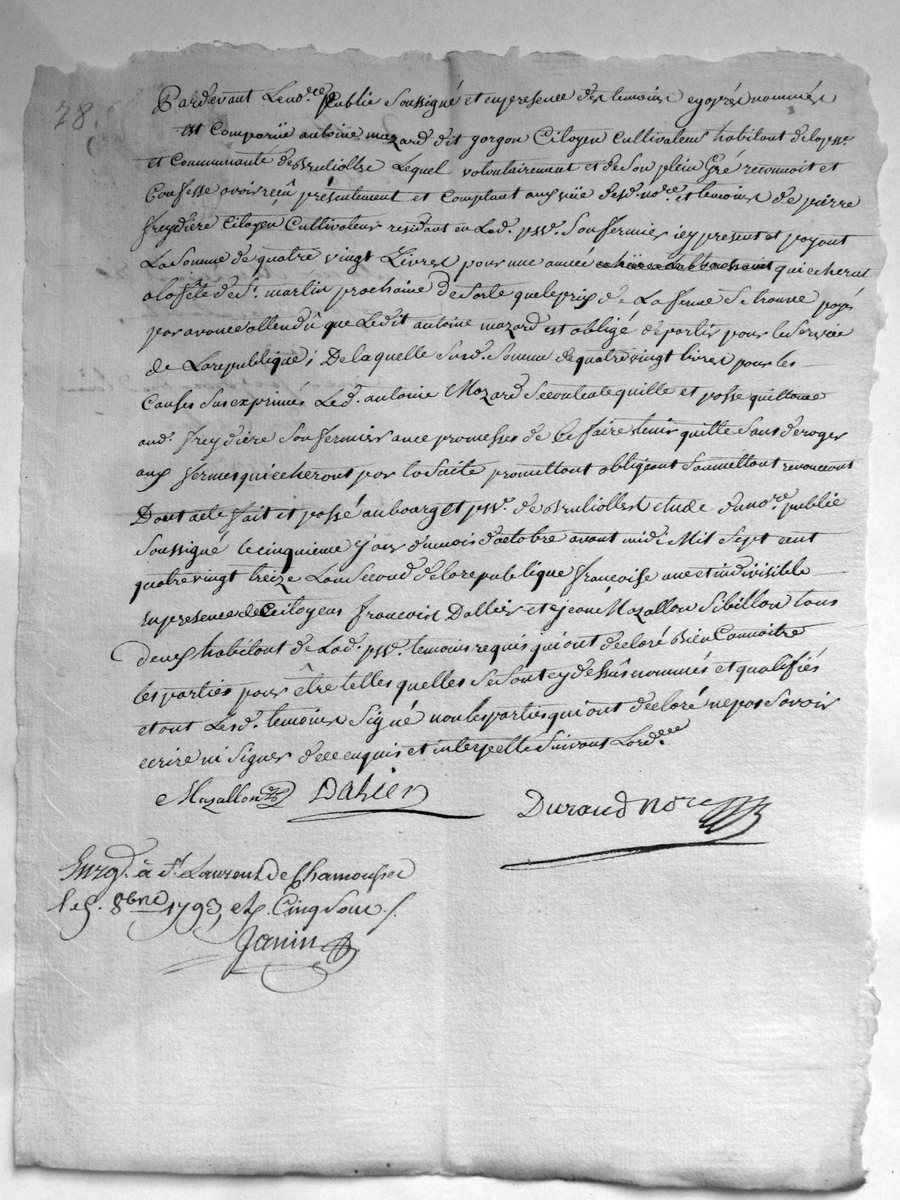 28.
Pardevant Le no.re Public Soussigné et en presence des temoins cy aprés nommés
est Comparüe antoine mazard dit gorgon Citoyen Cultivateur habitant de la psse.
et Communauté de Brulliolles Lequel volontairement et de Son plein Gré reconnoit et
Confesse avoir reçû présentement et Comptant aux vüe dud. no.re et temoins de pierre
freydière Citoyen Cultivateur residant en Lad. psse. Son fermier icy present et payant
La Somme de quatre vingt Livres pour une année qui echerat
a la fête de St. martin prochaine De Sorte que le prix de La ferme Se trouve payé
par avance attendû que Ledit antoine mazard est obligé de partir pour le Service
de La republique; De laquelle Susd. Somme de quatre vingt livres pour les
Causes Sus exprimés Led. antoine Mazard Se contente quitte et passe quittance
aud. freydière Son fermier avec promesses de Le faire tenir quitte Sans deroger
aux fermes qui echeront par la Suite promettant obligeant Soumettant renonceant
Dont acte fait et passé au bourg et psse. de Brulliolles etude du no.re public
Soussigné le cinquieme jour du mois d'octobre avant midi Mil Sept cent
quatre vingt treize Lan Second de la republique françoise une et indivisible
en presence de Citoyens françois Dallier et jean Mazallon Sibillon tous
deux habitant de Lad. psse. temoins requis qui ont declaré Bien Connoitre
les parties pour être telles quelles Se Sont cy deSsûs nommés et qualifiés
et ont Lesd. temoins Signé non les parties qui ont declaré ne pas Savoir
ecrire ni Signer de ce enquis et interpellé Suivant Lord.ce
Mazallon Dalier
Durand No.re
Enrg. à St. Laurent de Chamousset
le 5. 8bre 1793, Cinq Sous
Janin